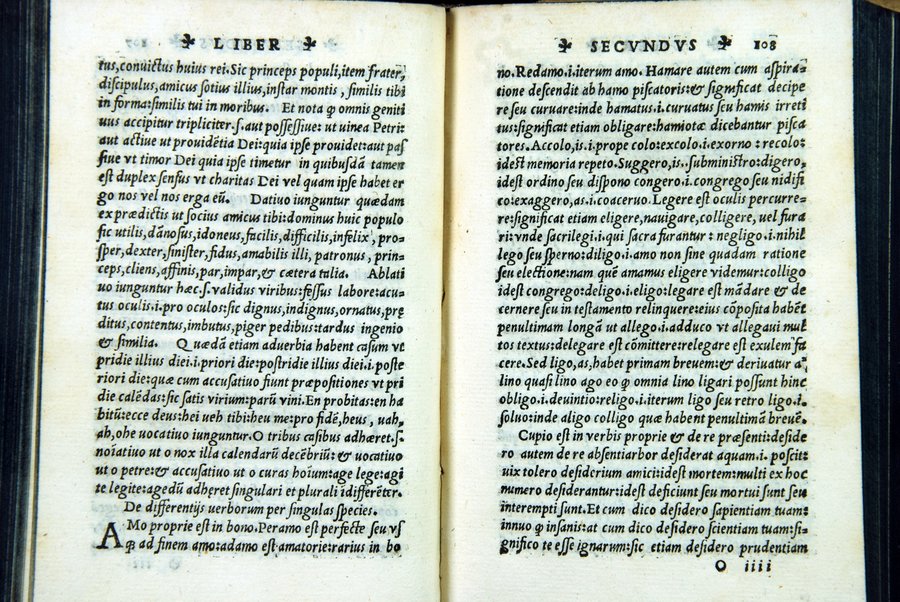 LIBER
tus,conuictus huius rei.Sic princeps populi,item frater,
discipulus,amicus sotius illius,instar montis , similis tibi
in forma:similis tui in moribus. Et nota ꝙ omnis geniti
uus accipitur tripliciter.ſ.aut possessiue: ut uinea Petri:
aut actiue ut prouidētia Dei:quia ipse prouidet:aut pas
siue vt timor Dei quia ipse timetur in quibusdā tamen
est duplex sensus vt charitas Dei vel quam ipse habet er
go nos vel nos erga eū. Datiuo iunguntur quædam
ex prædictis ut socius amicus tibi:dominus huic populo
sic utilis,dānosus,idoneus,facilis,difficilis,infelix , pro-
sper,dexter,sinister,fidus,amabilis illi, patronus , prin-
ceps,cliens,affinis,par,impar,& cætera talia. Ablati
uo iunguntur hæc.ſ.validus viribus:fessus labore:acu-
tus oculis.i.pro oculos:sic dignus,indignus,ornatus,prę
ditus,contentus,imbutus,piger pedibus:tardus ingenio
& similia. Quædā etiam aduerbia habent casum vt
pridie illius diei.i.priori die:postridie illius diei.i.poste
riori die:quæ cum accusatiuo fiunt præpositiones vt pri
die calēdas:sic satis virium:parū vini.En probitas:en ha
bitū:ecce deus:hei ueh tibi:heu me:pro fidē,heus , uah,
ah,ohe uocatiuo iunguntur.O tribus casibus adhæret.ſ.
noīatiuo ut o nox illa calendarū decēbriū:& uocatiuo
ut o petre:& accusatiuo ut o curas hoīum:age lege:agi
te legite:agedū adheret singulari et plurali īdifferēter.
De differentijs uerborum per singulas species.
AMo proprie est in bono.Peramo est perfecte seu vs
ꝙ ad finem amo:adamo est amatorie:rarius in bo
SECVNDVS 108
no.Redamo.i.iterum amo. Hamare autem cum aspira-
tione descendit ab hamo piscatoris:& significat decipe
re seu curuare:inde hamatus.i.curuatus seu hamis irreti
tus:significat etiam obligare:hamiotæ dicebantur pisca
tores.Accolo,is.i.prope colo:excolo.i.exorno : recolo:
idest memoria repeto.Suggero,is..subministro:digero,
idest ordino seu dispono congero.i.congrego seu nidifi
co:exaggero,as,i.coaceruo.Legere est oculis percurre-
re:significat etiam eligere,nauigare,colligere, uel fura
ri:vnde sacrilegi.i.qui sacra furantur : negligo.i.nihil
lego seu sperno:diligo.i.amo non sine quadam ratione
seu electione:nam quē amamus eligere videmur:colligo
idest congrego:deligo.i.eligo:legare est mādare & de
cernere seu in testamento relinquere:eius cōposita habēt
penultimam longā ut allego.i.adduco vt allegaui mul
tos textus:delegare est cōmittere:relegare est exulem fa
cere.Sed ligo,as,habet primam breuem:& deriuatur a
lino quasi lino ago eo ꝙ omnia lino ligari possunt hinc
obligo.i.deuintio:religo.i.iterum ligo seu retro ligo.i.
soluo:inde aligo colligo quæ habent penultimā breuē.
Cupio est in verbis proprie & de re præsenti:deside
ro autem de re absentiarbor desiderat aquam.i. poscit:
uix tolero desiderium amici:idest mortem:multi ex hoc
numero desiderantur:idest deficiunt seu mortui sunt seu
interempti sunt.Et cum dico desidero sapientiam tuam:
innuo ꝙ insanis:at cum dico desidero scientiam tuam:si-
gnifico te esse ignarum:sic etiam desidero prudentiam
O iiii